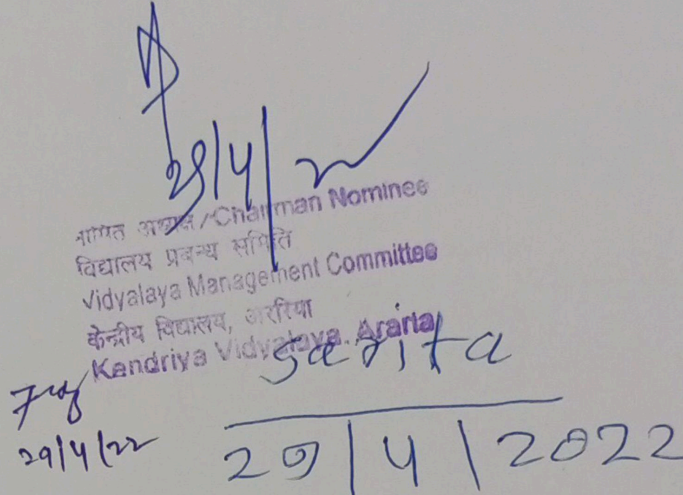 29/4/22
नामित अध्यक्ष/Chairman Nominee
विद्यालय प्रबन्ध समिति
Vidyalaya Management Committee
केन्द्रीय विद्यालय, अररिया
Kendriya Vidyalaya. Araria
Sarita
29/4/22
29/4/2022